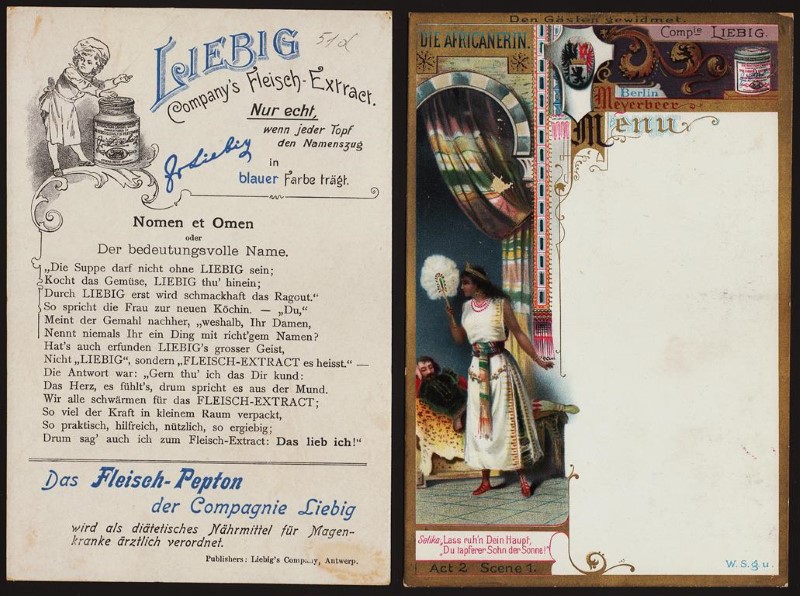 LIEBIG
Company's Fleisch-Extract.
Nur echt,
wenn jeder Topf
den Namenszug
JvLiebig
in
blauer Farbe trägt.
Nomen et Omen
oder
Der bedeutungsvolle Name.
„Die Suppe darf nicht ohne LIEBIG sein;
Kocht das Gemüse, LIEBIG thu' hinein;
Durch LIEBIG erst wird schmackhaft das Ragout.“
So spricht die Frau zur neuen Köchin. — „Du,“
Meint der Gemahl nachher, „weshalb, Ihr Damen,
Nennt niemals Ihr ein Ding mit richt'gem Namen?
Hat's auch erfunden LIEBIG's grosser Geist,
Nicht „LIEBIG“, sondern „FLEISCH-EXTRACT es heisst.“ —
Die Antwort war: „Gern thu' ich das Dir kund:
Das Herz, es fühlt's, drum spricht es aus der Mund.
Wir alle schwärmen für das FLEISCH-EXTRACT;
So viel der Kraft in kleinem Raum verpackt,
So praktisch, hilfreich, nützlich, so ergiebig;
Drum sag' auch ich zum Fleisch-Extract: Das lieb ich!“
Das Fleisch-Pepton
der Compagnie Liebig
wird als diätetisches Nährmittel für Magen-
kranke ärztlich verordnet.
Publishers: Liebig's Company, Antwerp.
Den Gästen gewidmet.
DIE AFRICANERIN.
Compie LIEBIG.
Berlin
Meyerbeer
Menu
Selika „Lass ruh'n Dein Haupt,
„Du tapferer Sohn der Sonne!“
Act 2 Scene 1.
W. S. g. u.